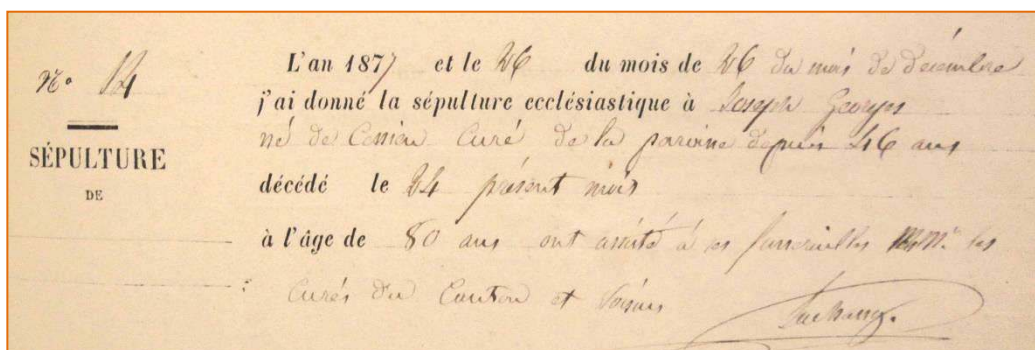 N° 14
SÉPULTURE
DE
L'an 1877 et le 26 du mois de 26 du mois de décembre
j'ai donné la sépulture ecclésiastique à Joseph
né de Cessieu Curé de la paroisse depuis 46 ans
décédé le 24 présent mois
à l'âge de 80 ans ont assisté à ses funérailles MM. les
Curés du Canton et voisins